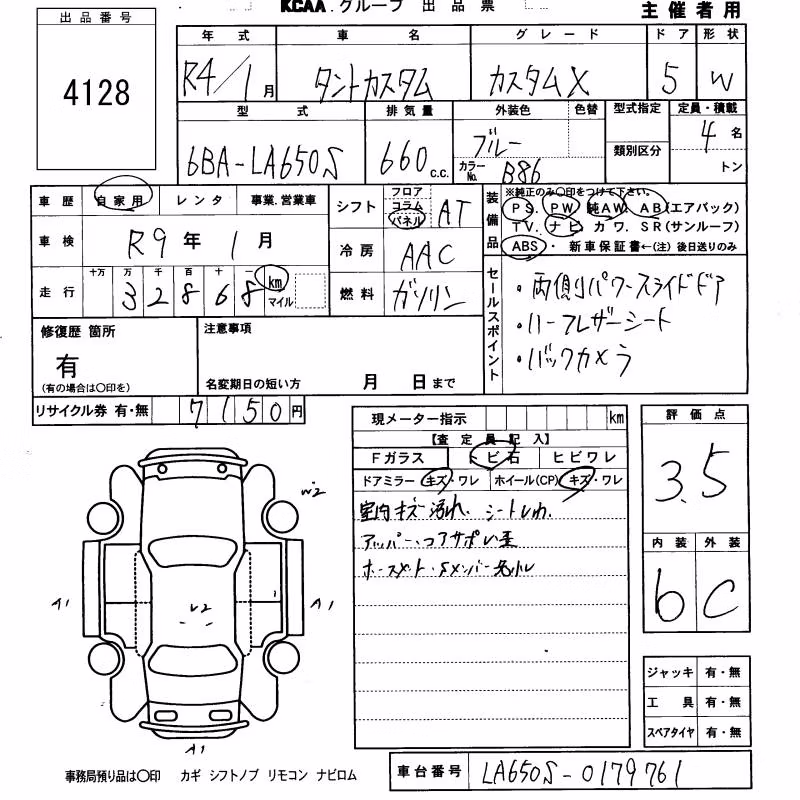 KCAA.グループ 出品票
主催者用
出品番号
4128
年式 車名 グレード ドア 形状
R4/1月 タントカスタム カスタムX 5 W
型式 排気量 外装色 色替 型式指定 定員・積載
6BA-LA650S 660c.c. ブルー 類別区分 4名
カラーNo. B86 トン
車歴 自家用 レンタ 事業.営業車
車検 R9年1月
十万 万 千 百 十 一
走行 3 2 8 6 8 km マイル
シフト フロア コラム パネル AT
冷房 AAC
燃料 ガソリン
装備品 ※純正のみ〇印をつけて下さい。
PS. PW. 純AW. AB(エアバック)
TV. ナビ カワ. SR(サンルーフ)
ABS・新車保証書←(注)後日送りのみ
セールスポイント
・両側パワースライドドア
・ハーフレザーシート
・バックカメラ
修復歴 箇所
有
(有の場合は〇印を)
注意事項
名変期日の短い方 月 日まで
リサイクル券 有・無 7150円
現メーター指示 km
【査定員記入】
Fガラス トビ石 ヒビワレ
ドアミラー キズ・ワレ ホイール(CP) キズ・ワレ
室内キズ 汚れ、シートしわ
アッパー・コアサポ
評価点
3.5
内装 外装
b C
W2
A1
U2
A1
A1
ジャッキ 有・無
工具 有・無
スペアタイヤ 有・無
事務局預り品は〇印 カギ シフトノブ リモコン ナビロム
車台番号 LA650S-0179761